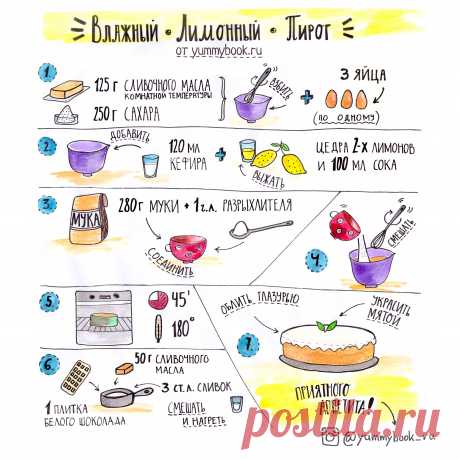 Влажный • Лимонный • Пирог
от yummybook.ru
1.
125 г сливочного масла
комнатной температуры
250 г сахара
взбить
3 яйца
(по одному)
2.
добавить
120 мл
кефира
выжать
цедра 2-х лимонов
и 100 мл сока
3.
мука
280 г муки + 1 ч.л. разрыхлителя
соединить
4.
смешать
5.
45'
180°
6.
50 г сливочного
масла
3 ст.л. сливок
1 плитка
белого шоколада
смешать
и нагреть
7.
облить глазурью
украсить
мятой
приятного
аппетита!
@yummybook_ru
postila.ru